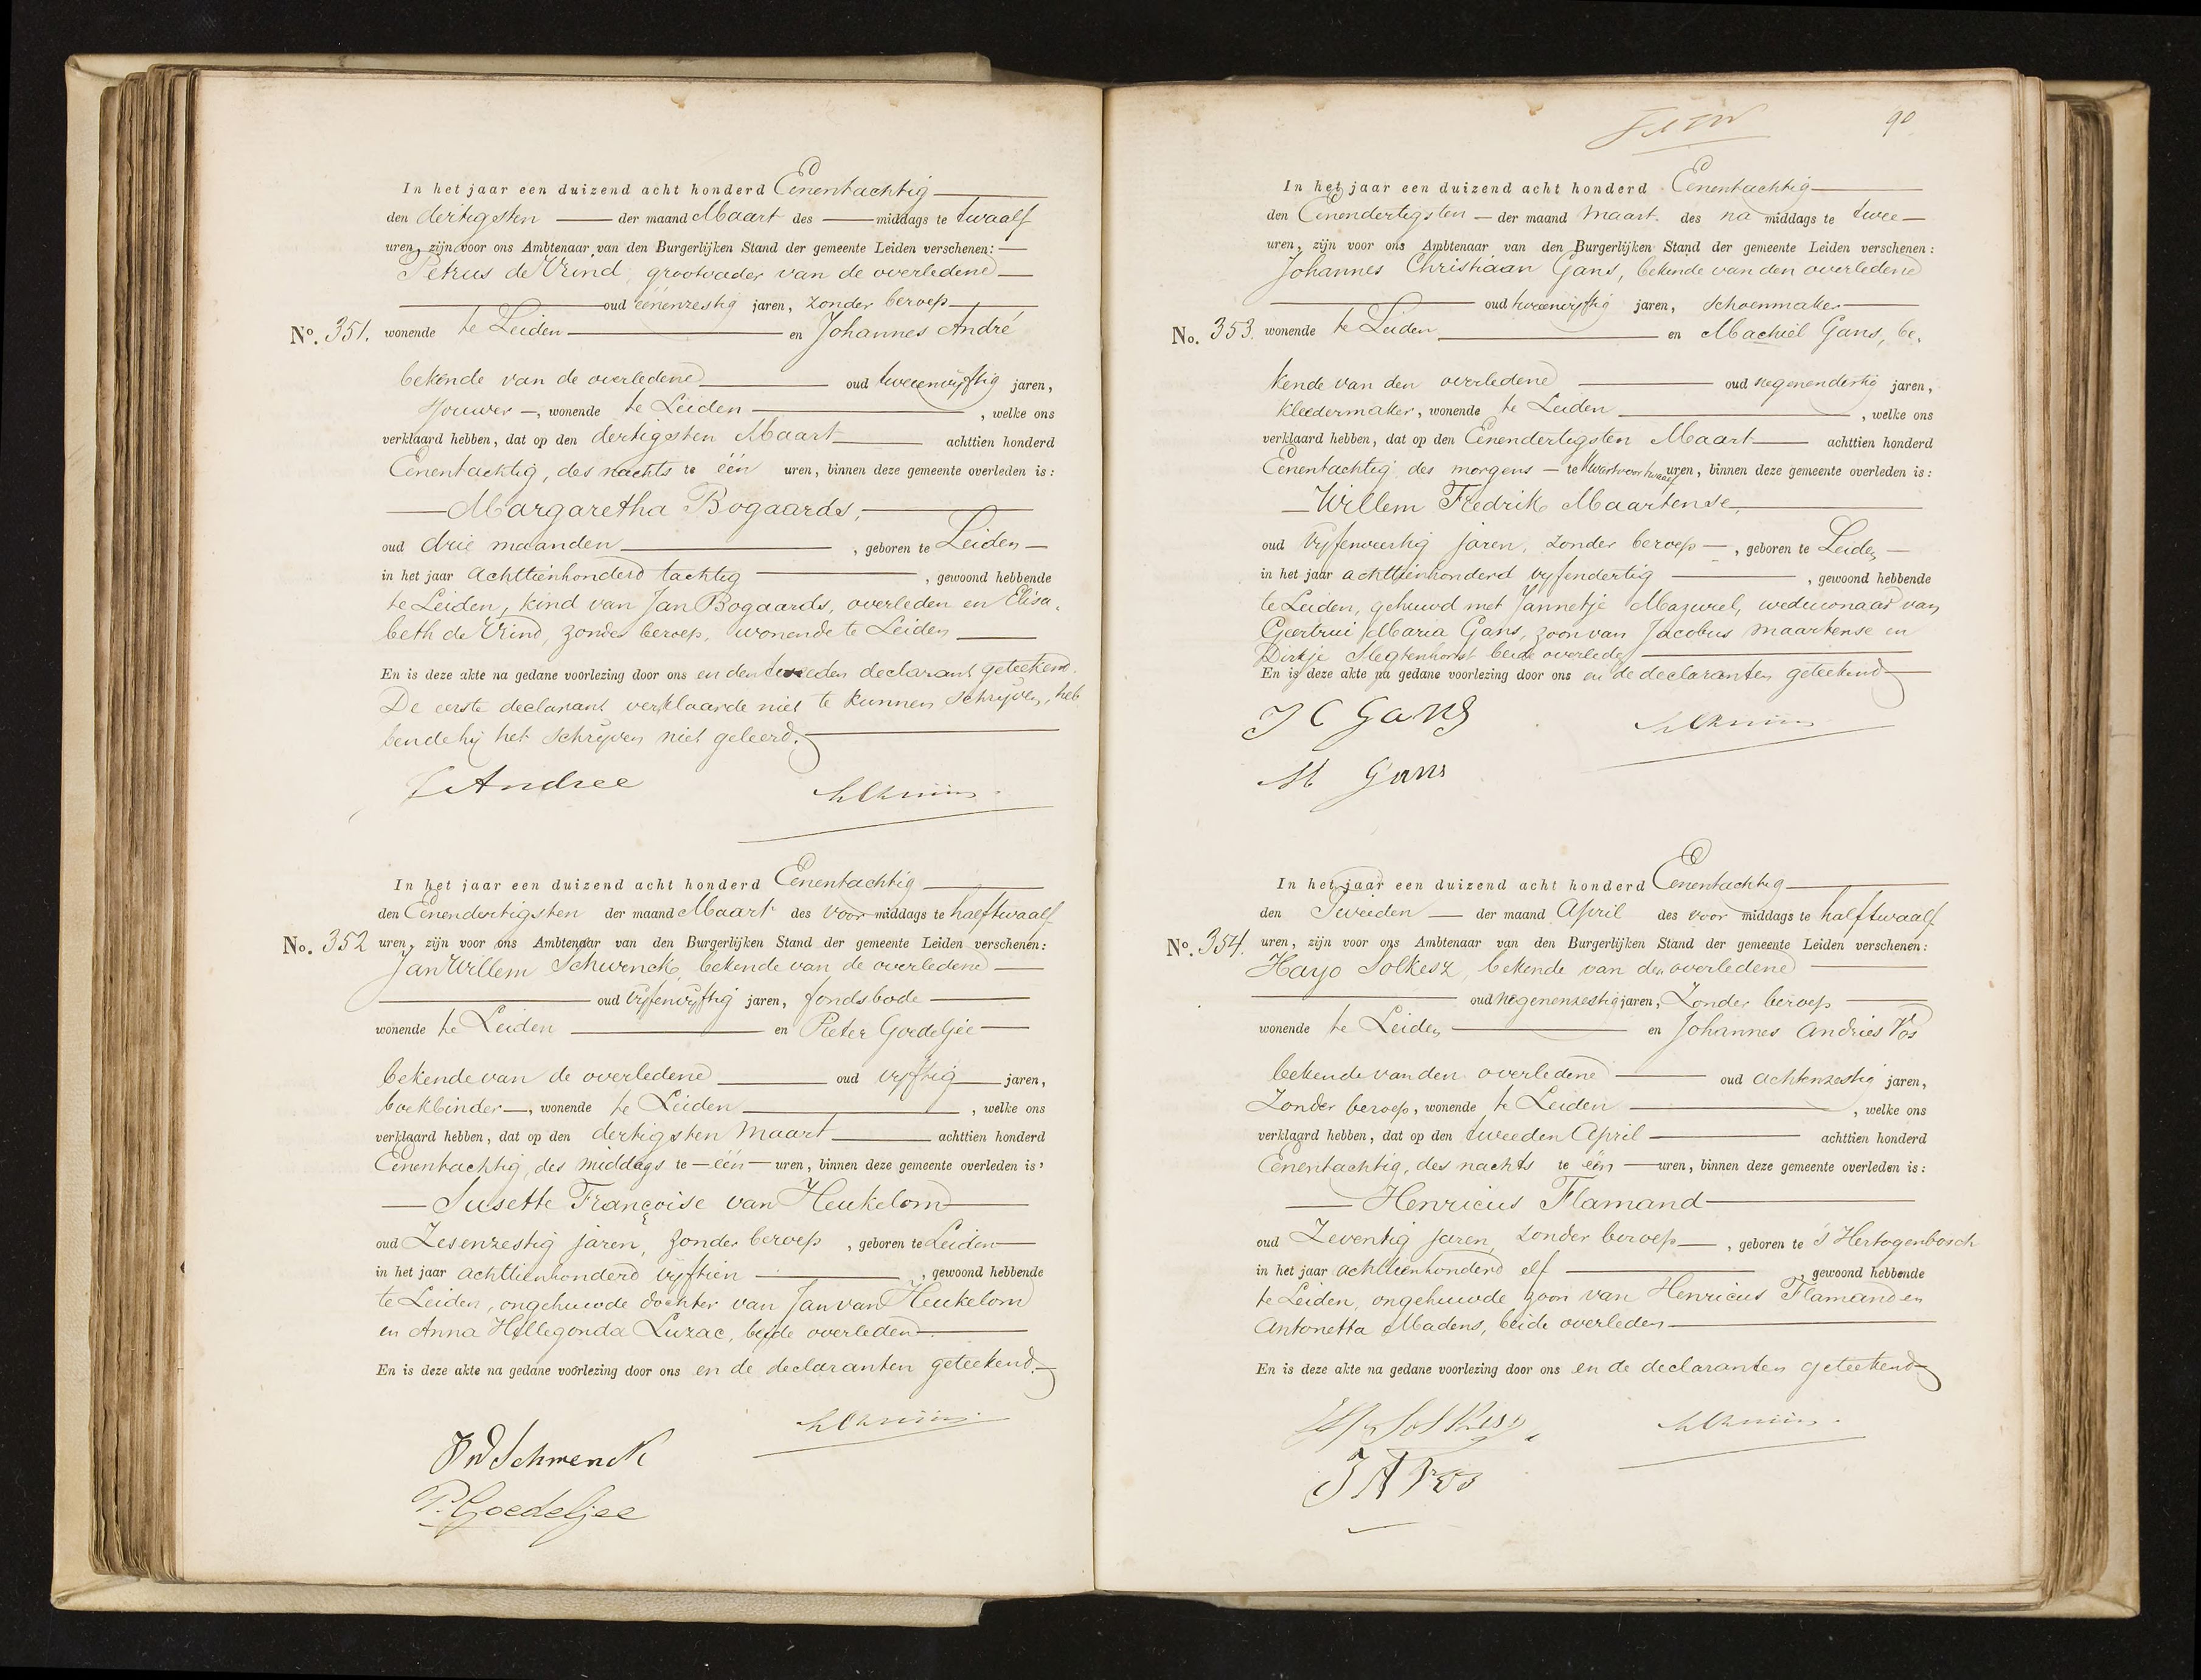 In het jaar een duizend acht honderd Eenentachtig
den dertigsten der maand Maart des middags te twaalf
uren, zijn voor ons Ambtenaar van den Burgerlijken Stand der gemeente Leiden verschenen:
Petrus de Vrind, grootvader van de overledene
oud eenenzestig jaren, zonder beroep
No. 351. wonende te Leiden en Johannes André
bekende van de overledene oud tweeenvijftig jaren,
sjouwer, wonende te Leiden, welke ons
verklaard hebben, dat op den dertigsten Maart achttien honderd
Eenentachtig, des nachts te één uren, binnen deze gemeente overleden is:
Margaretha Bogaards,
oud drie maanden, geboren te Leiden
in het jaar achttienhonderd tachtig, gewoond hebbende
te Leiden, kind van Jan Bogaards, overleden en Elisa-
beth de Vrind, zonder beroep, wonende te Leiden
En is deze akte na gedane voorlezing door ons en den tweeden declarant geteekend.
De eerste declarant verklaarde niet te kunnen schrijven, heb
bende hij het schrijven niet geleerd.
J Andree
In het jaar een duizend acht honderd Eenentachtig
den Eenendertigsten der maand Maart des voor middags te half twaalf
No. 352 uren, zijn voor ons Ambtenaar van den Burgerlijken Stand der gemeente Leiden verschenen:
Jan Willem Schwenck, bekende van de overledene
oud vijfenvijftig jaren, fondsbode
wonende te Leiden en Pieter Goedeljee
bekende van de overledene oud vijftig jaren,
boekbinder, wonende te Leiden, welke ons
verklaard hebben, dat op den dertigsten Maart achttien honderd
Eenentachtig, des middags te één uren, binnen deze gemeente overleden is:
Susette Françoise van Heukelom
oud Zesenzestig jaren, zonder beroep, geboren te Leiden
in het jaar achttienhonderd vijftien, gewoond hebbende
te Leiden, ongehuwde dochter van Jan van Heukelom
en Anna Hillegonda Luzac, beide overleden
En is deze akte na gedane voorlezing door ons en de declaranten geteekend.
JW Schwenck
P. Goedeljee
90
In het jaar een duizend acht honderd Eenentachtig
den Eenendertigsten der maand Maart des na middags te twee
uren, zijn voor ons Ambtenaar van den Burgerlijken Stand der gemeente Leiden verschenen:
Johannes Christiaan Gans, bekende van den overledene
oud tweeenvijftig jaren, schoenmaker
No. 353. wonende te Leiden en Machiel Gans, be-
kende van den overledene oud negenendertig jaren,
kleedermaker, wonende te Leiden, welke ons
verklaard hebben, dat op den Eenendertigsten Maart achttien honderd
Eenentachtig des morgens te kwart voor twaalf uren, binnen deze gemeente overleden is:
Willem Fredrik Maartense,
oud vijfenveertig jaren, zonder beroep, geboren te Leiden
in het jaar achttienhonderd vijfendertig, gewoond hebbende
te Leiden, gehuwd met Jannetje Mazurel, weduwnaar van
Geertrui Maria Gans, zoon van Jacobus Maartense en
Dirkje Slegtenhorst beide overleden
En is deze akte na gedane voorlezing door ons en de declaranten geteekend
J C Gans
M Gans
In het jaar een duizend acht honderd Eenentachtig
den Tweeden der maand April des voor middags te half twaalf
No. 354. uren, zijn voor ons Ambtenaar van den Burgerlijken Stand der gemeente Leiden verschenen:
Hayo Solkesz, bekende van den overledene
oud negenenzestig jaren, Zonder beroep
wonende te Leiden en Johannes Andries Vos
bekende van den overledene oud achtenzestig jaren,
Zonder beroep, wonende te Leiden, welke ons
verklaard hebben, dat op den tweeden April achttien honderd
Eenentachtig, des nachts te één uren, binnen deze gemeente overleden is:
Henricus Flamand
oud Zeventig jaren, zonder beroep, geboren te 's Hertogenbosch
in het jaar achttienhonderd elf, gewoond hebbende
te Leiden, ongehuwde zoon van Henricus Flamand en
Antonetta Madens, beide overleden
En is deze akte na gedane voorlezing door ons en de declaranten geteekend
J A Vos